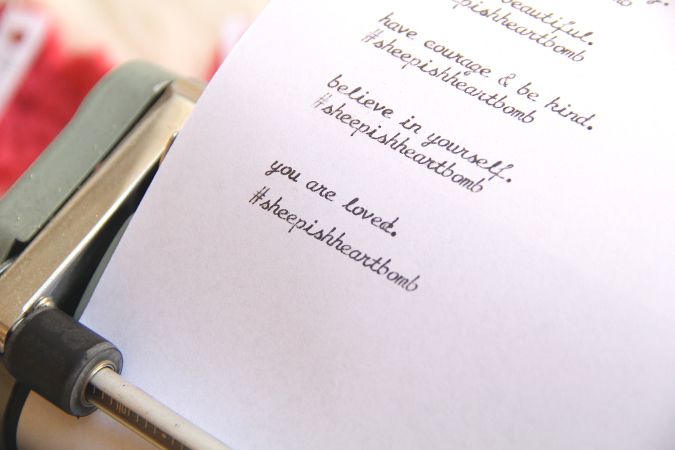 beautiful.
#sheepishheartbomb
have courage & be kind.
#sheepishheartbomb
believe in yourself.
#sheepishheartbomb
you are loved.
#sheepishheartbomb